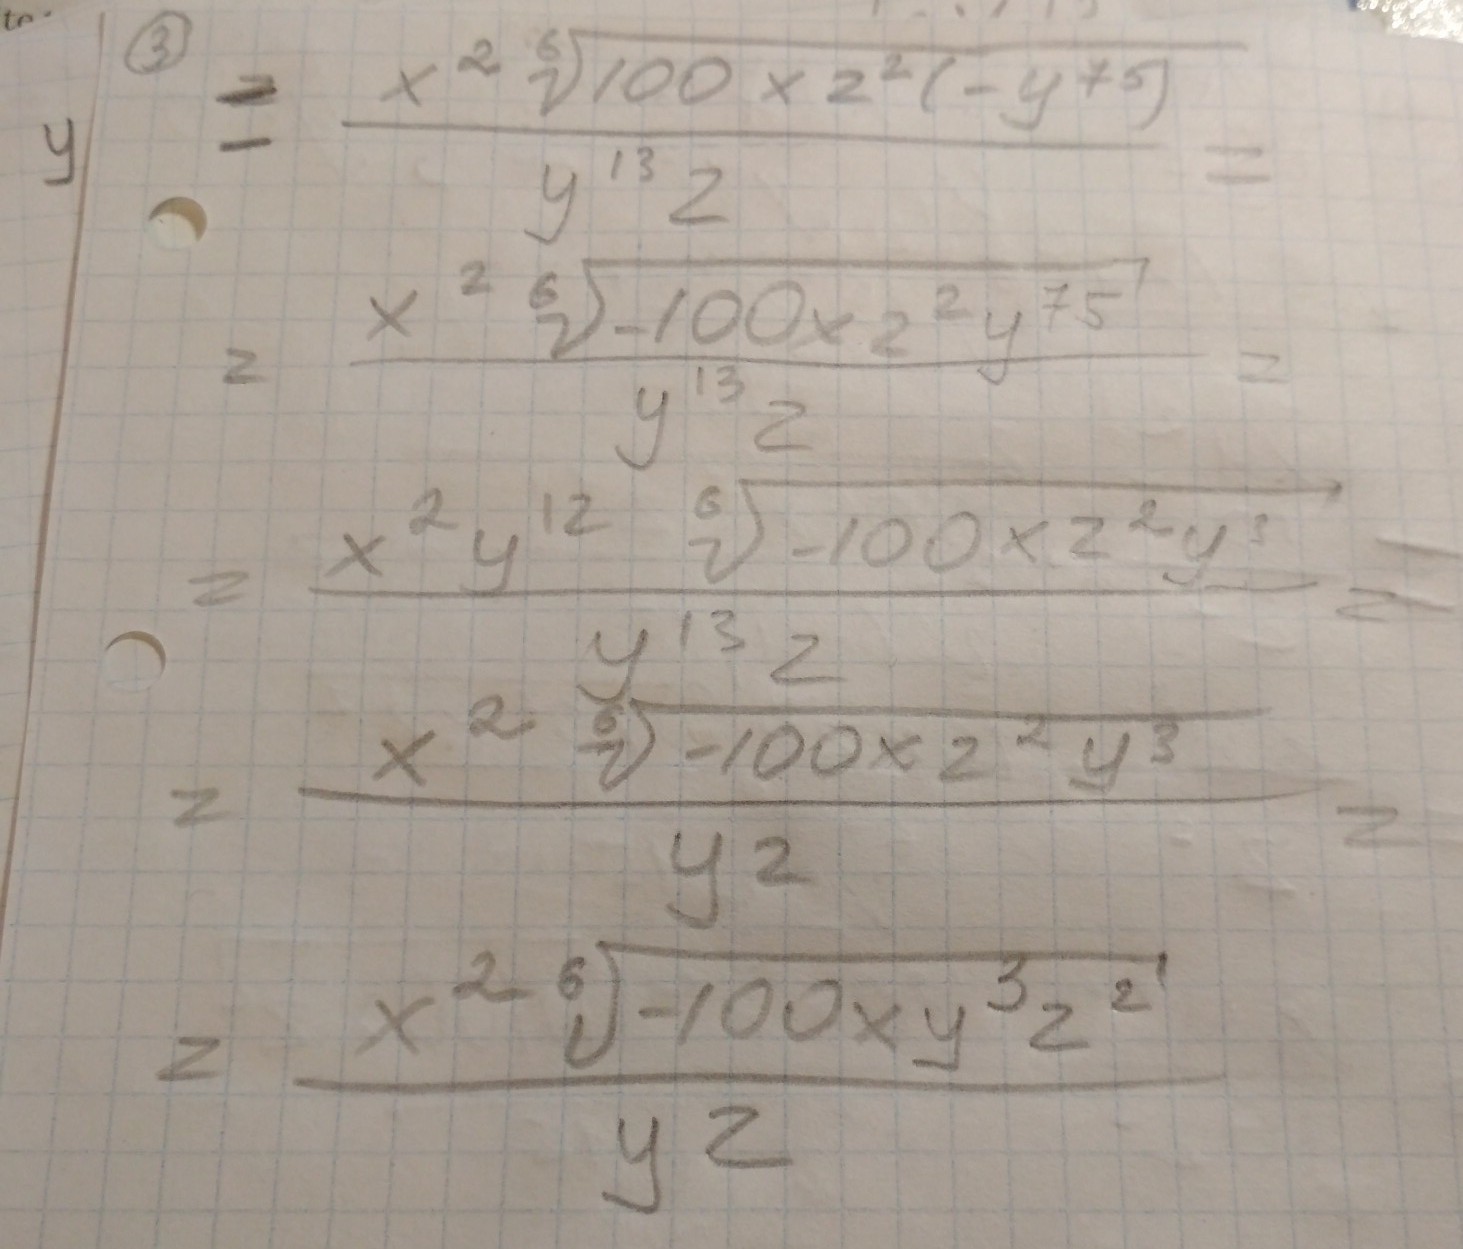 to.
③
y = x² ⁶√100xz²(-y⁷⁵) / y¹³z =
= x² ⁶√-100xz²y⁷⁵ / y¹³z =
= x²y¹² ⁶√-100xz²y³ / y¹³z =
= x² ⁶√-100xz²y³ / yz =
= x² ⁶√-100xy³z² / yz